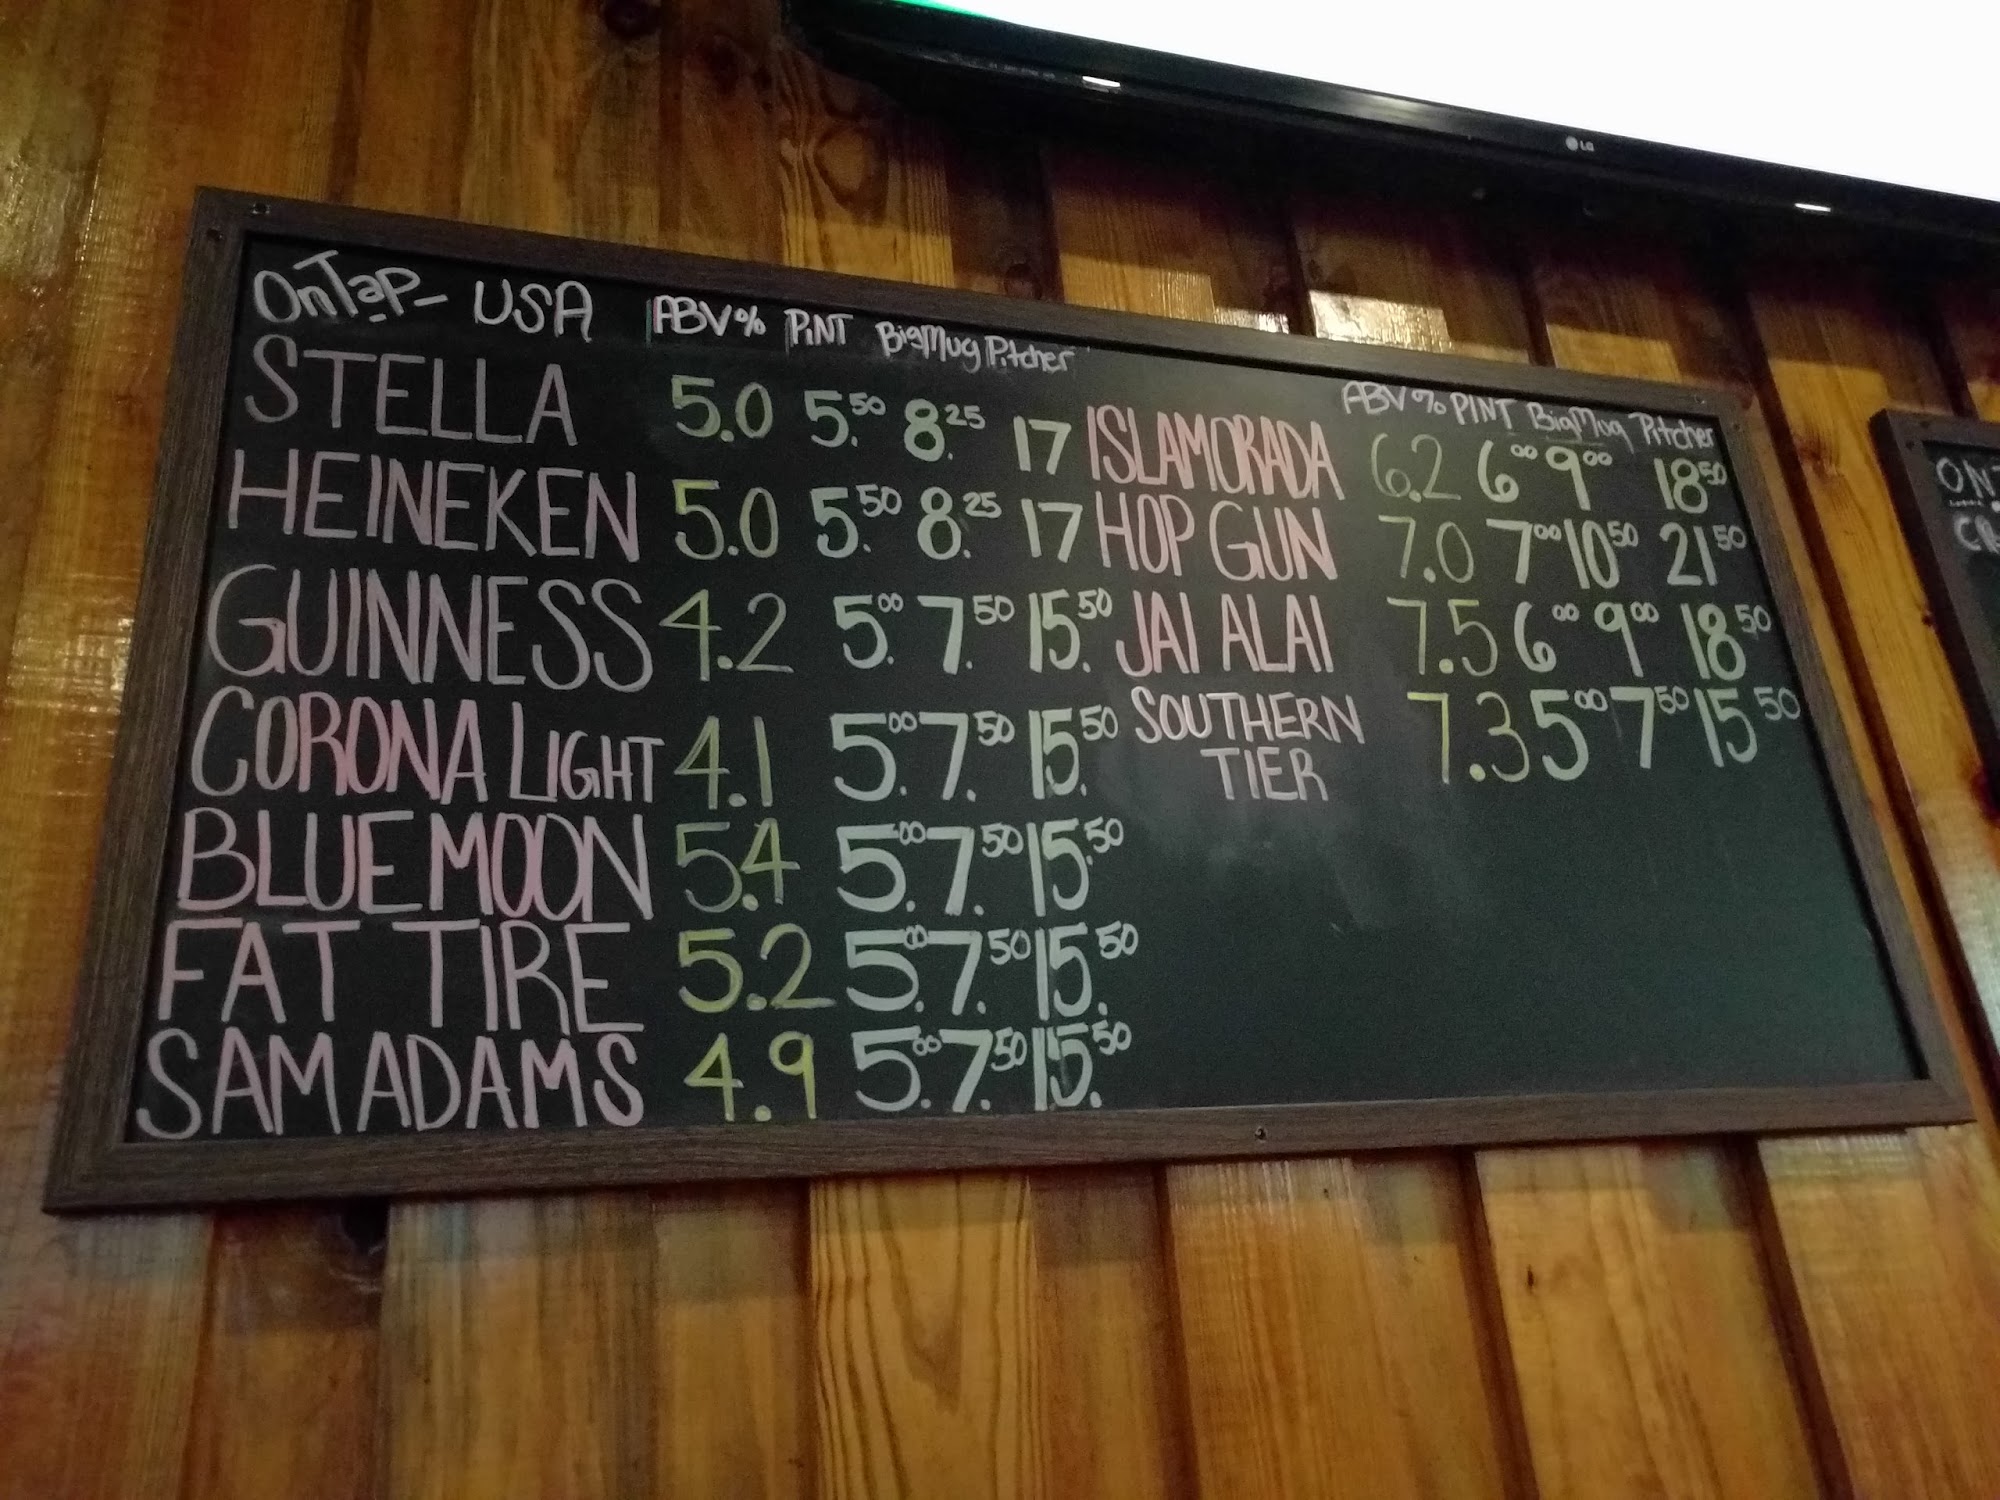 LG
OnTap- USA ABV% PiNT BigMug Pitcher
STELLA 5.0 5.50 8.25 17
HEINEKEN 5.0 5.50 8.25 17
GUINNESS 4.2 5.00 7.50 15.50
CORONA LIGHT 4.1 5.00 7.50 15.50
BLUE MOON 5.4 5.00 7.50 15.50
FAT TIRE 5.2 5.00 7.50 15.50
SAM ADAMS 4.9 5.00 7.50 15.50
ABV% PINT BigMug Pitcher
ISLAMORADA 6.2 6 00 9 00 18 50
HOP GUN 7.0 7 00 10 50 21 50
JAI ALAI 7.5 6 00 9 00 18 50
SOUTHERN 7.3 5 00 7 50 15 50
TIER